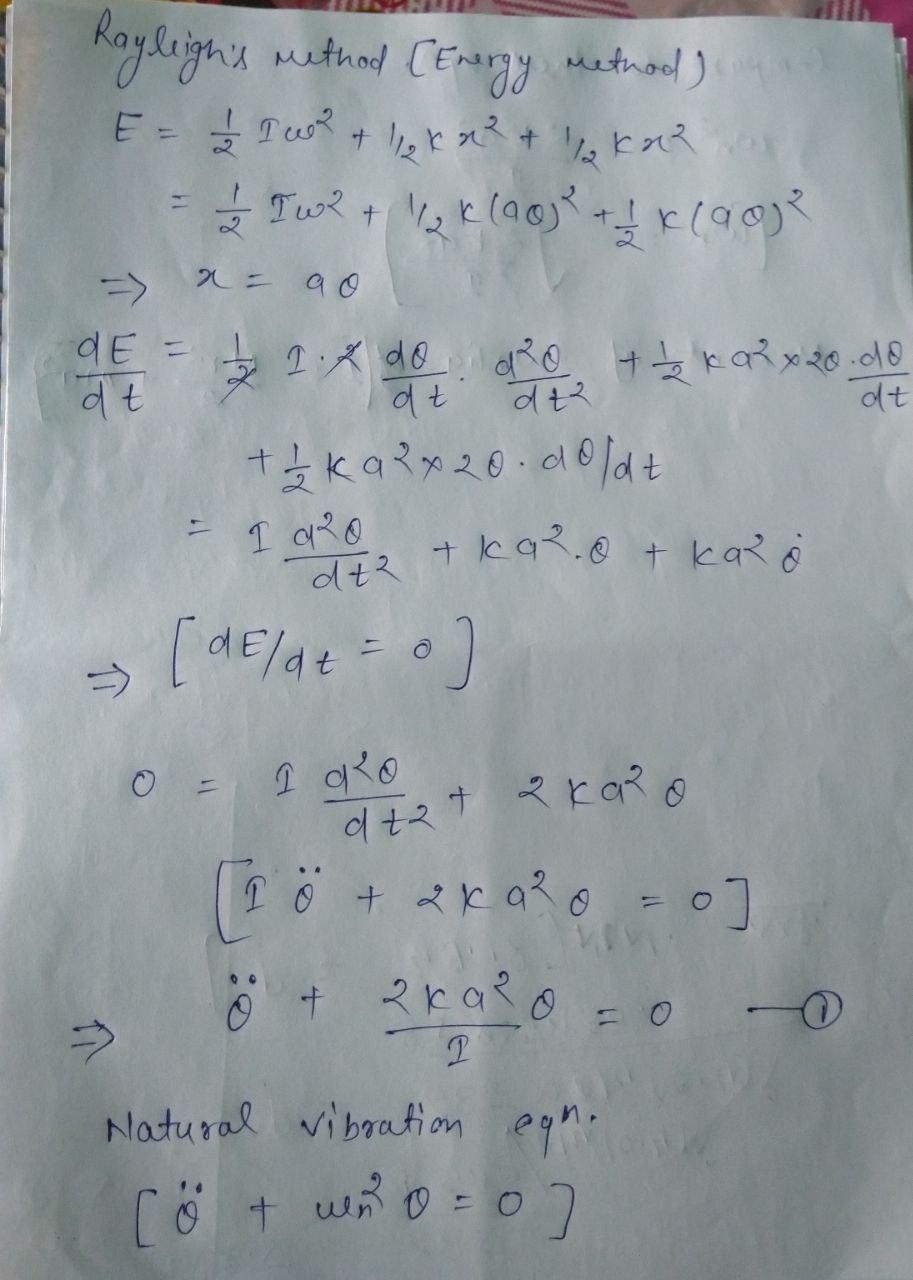 Rayleigh's method [Energy method)
E = 1/2 Iω² + 1/2 K x² + 1/2 Kx²
= 1/2 Iω² + 1/2 K(aθ)² + 1/2 K(aθ)²
⇒ x = aθ
dE/dt = 1/2 I·2 dθ/dt · d²θ/dt² + 1/2 Ka² × 2θ · dθ/dt
+ 1/2 Ka² × 2θ · dθ/dt
= I d²θ/dt² + Ka².θ + Ka² θ̇
⇒ [dE/dt = 0]
0 = I d²θ/dt² + 2Ka² θ
[I θ̈ + 2Ka² θ = 0]
⇒ θ̈ + 2Ka²/I θ = 0 —①
Natural vibration eqn.
[θ̈ + ωn² θ = 0]